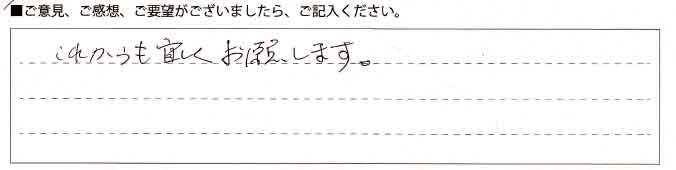 ■ご意見、ご感想、ご要望がございましたら、ご記入ください。
これからも宜しくお願いします。